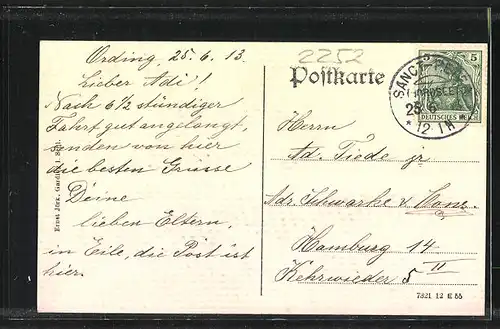 Ording, 25.6.13
Lieber Adi!
Nach 6½ stündiger
Fahrt gut angelangt,
senden von hier
die besten Grüsse
Deine
lieben Eltern,
in Eile, die Post ist
hier.
Ernst Jörn, Garding i. Schl.
2252
Postkarte
Herrn
Ad. Tiede jr
Adr. Schwarke &
Hamburg 14
Kehrwieder 5 II
7821 12 E 55
5
DEUTSCHES REICH
SANCT PETER
(NORDSEEBAD)
25.6
* 12-1N